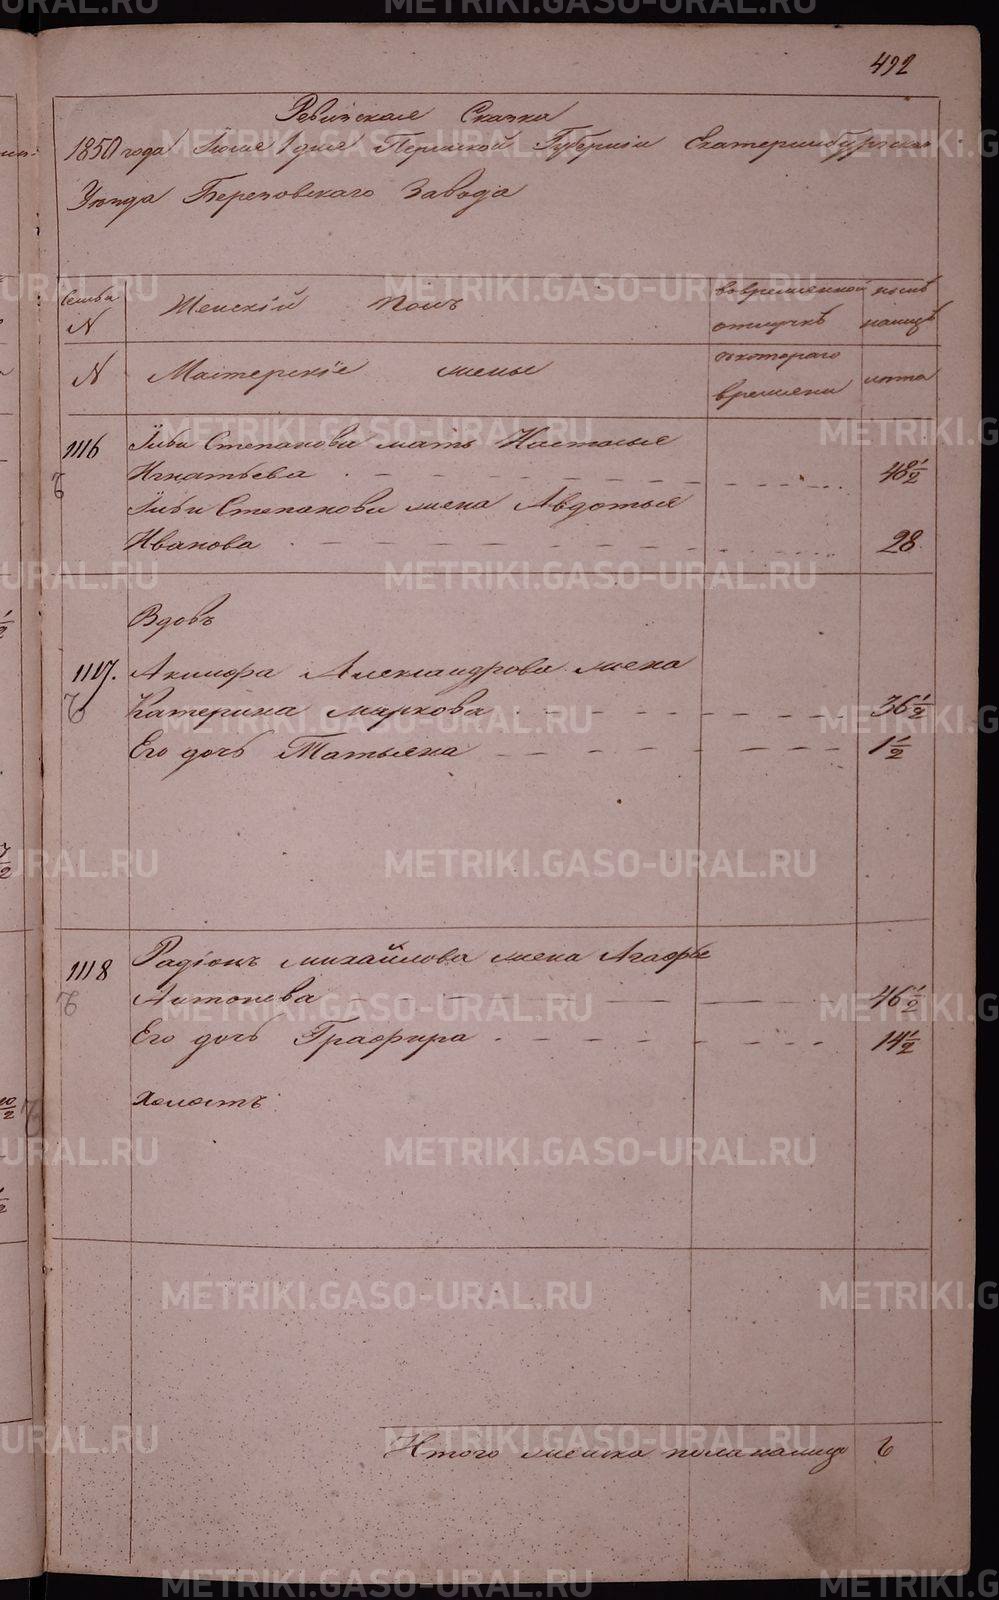 492
Ревизская Сказка
1850 года Июля 1 дня Пермской Губернiи Екатеринбургскаго
Уезда Березовскаго Завода
Семьи
N
Женскiй Полъ
во временной
отлучкѣ
ныне
налицѣ
N
Мастерскiе жены
съ котораго
времени
лѣта
1116
Ильи Степанова мать Настасья
Игнатьева 48 1/2
Ильи Степанова жена Авдотья
Иванова 28
Вдовъ
1117. Акинфа Александрова жена
Катерина маркова 36 1/2
Его дочь Татьяна 1 1/2
1118
Радiонъ михайлова жена Агафья
Антонова 46 1/2
Его дочь Графира 14 1/2
Холостъ
Итого женска пола налицо 6
METRIKI.GASO-URAL.RU